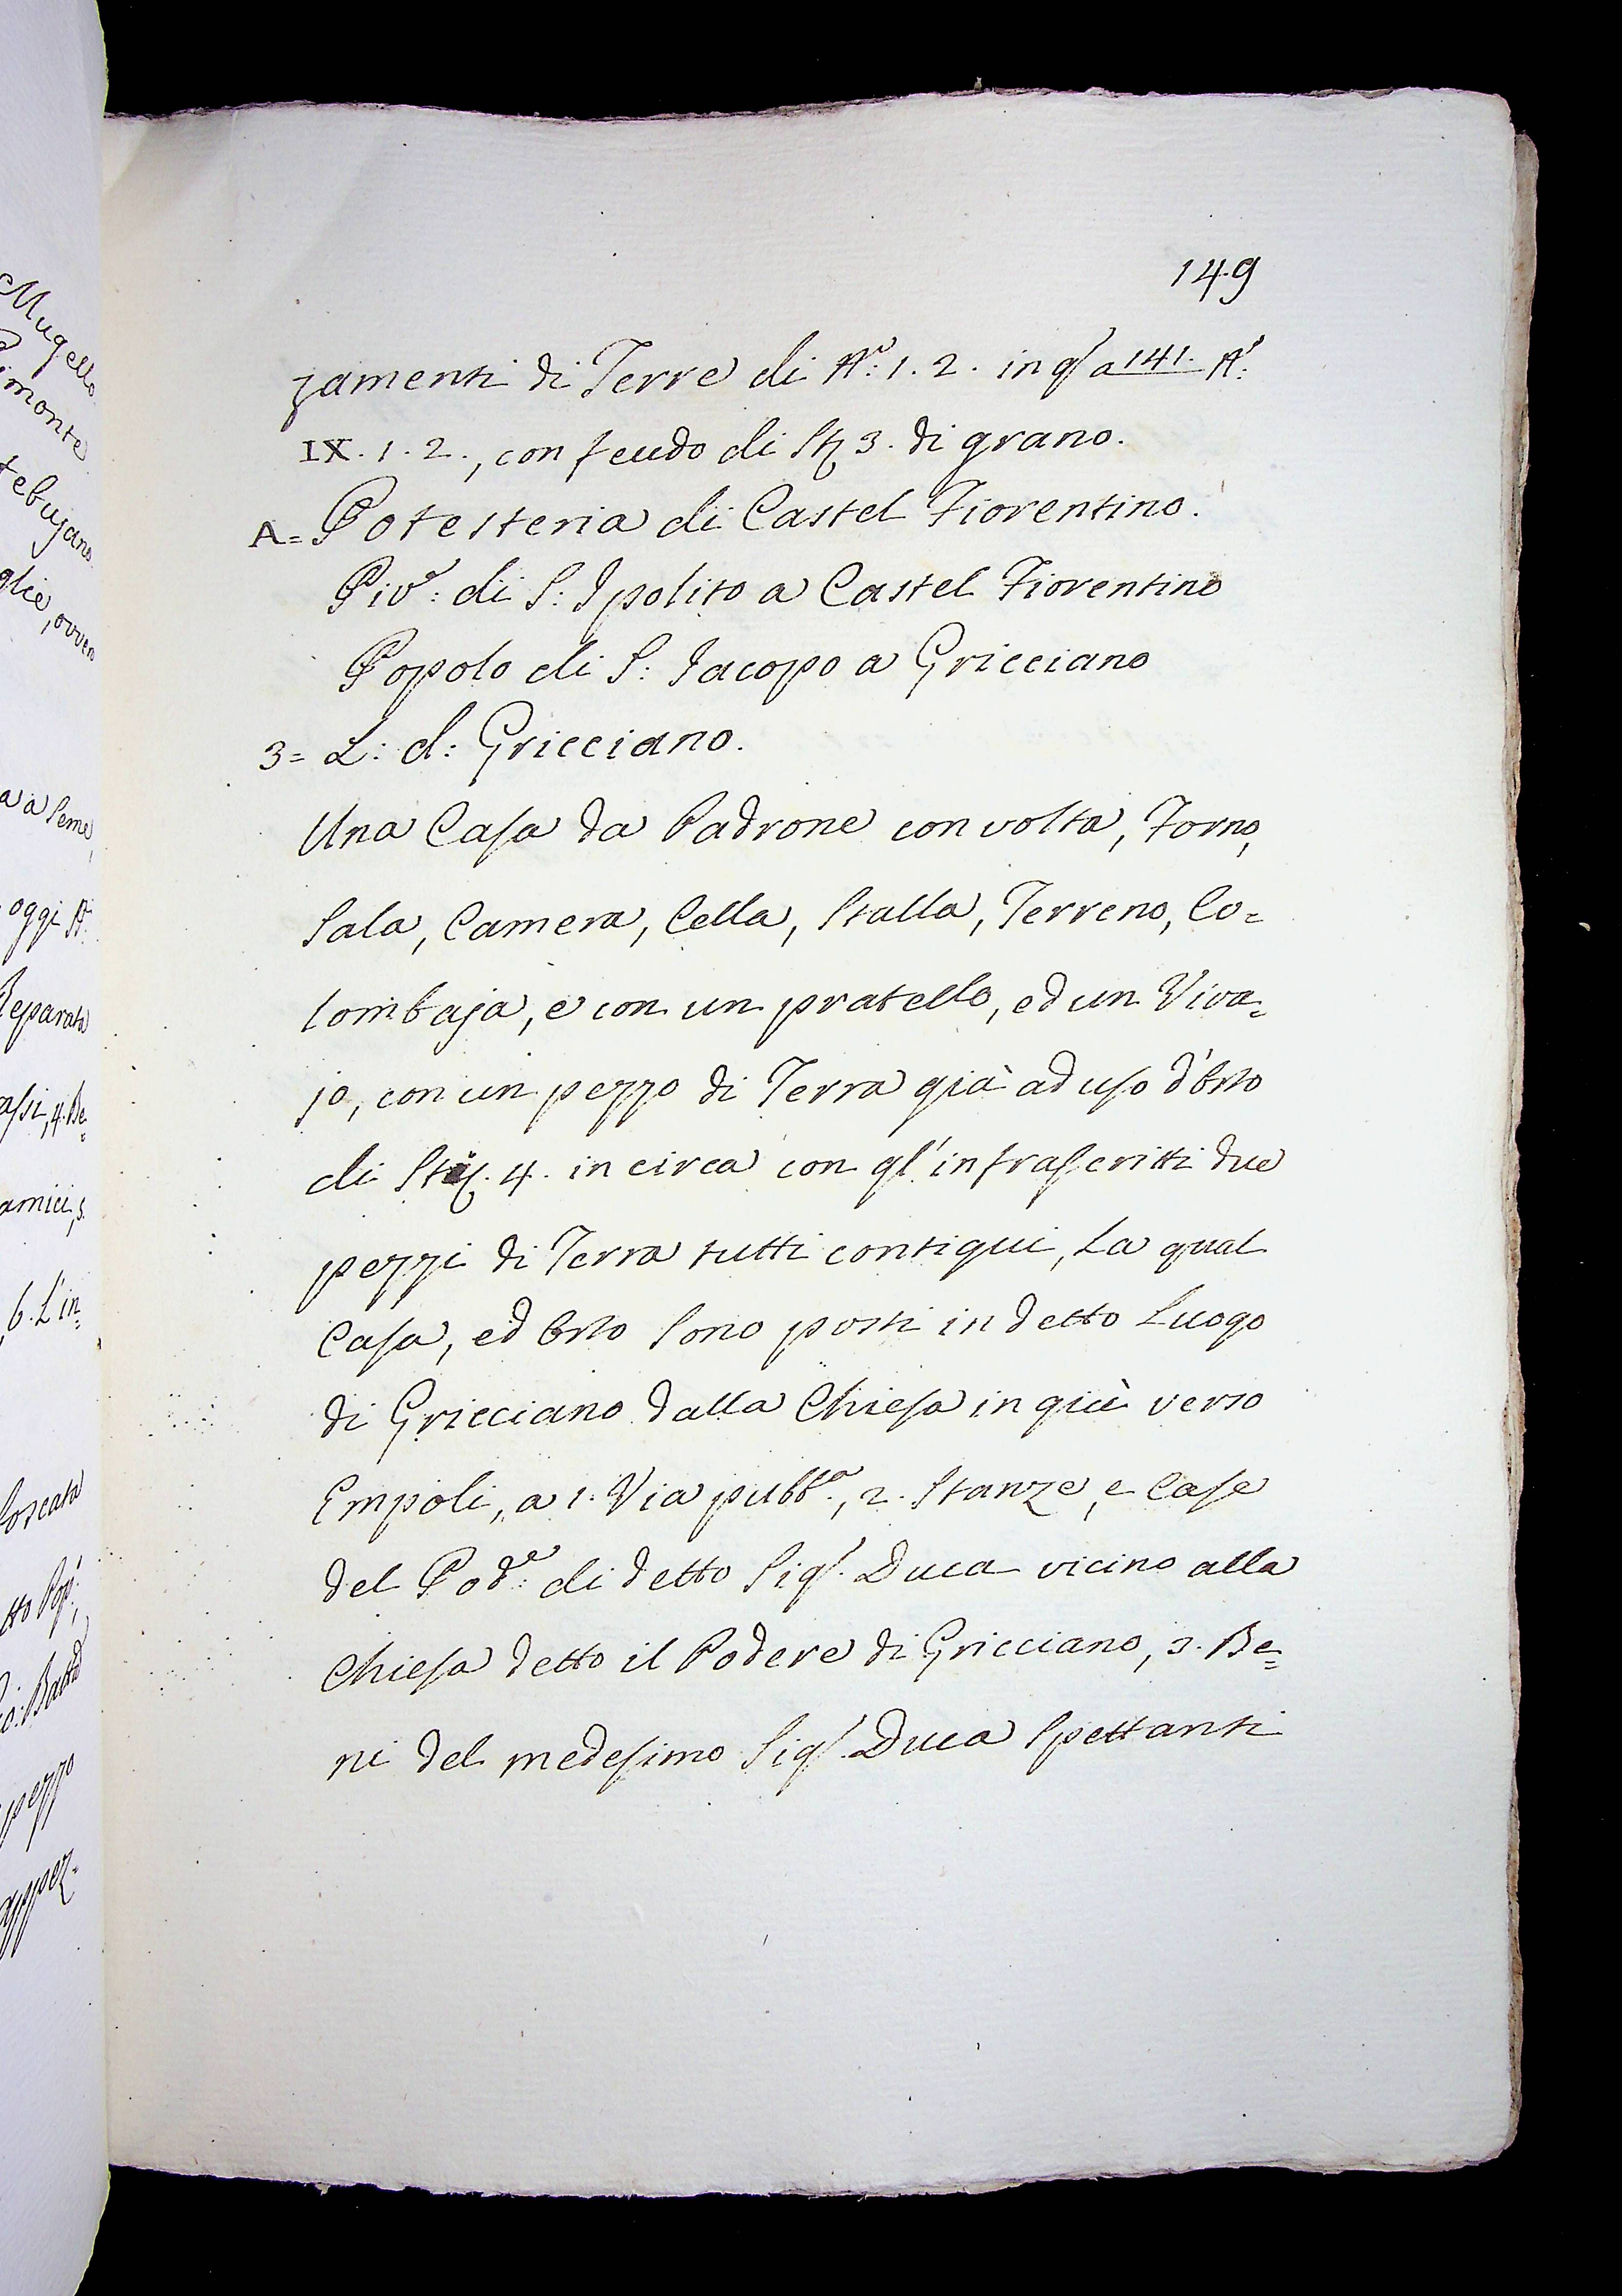 149
zamenti di Terre di Nº: 1. 2. in qs a 141. Nº:
IX. 1. 2., con feudo di St 3. di grano.
A= Potesteria di Castel Fiorentino.
Pivº: di S: Ipolito a Castel Fiorentino
Popolo di S: Jacopo a Gricciano
3= L: d: Gricciano.
Una Casa da Padrone con volta, Forno,
Sala, Camera, Cella, Stalla, Terreno, Co=
lombaja, e con un pratello, ed un Viva=
jo, con un pezzo di Terra già ad uso d'Orto
di 4. in circa con gl'infrascritti due
pezzi di Terra tutti contigui, La qual
Casa, ed Orto sono posti in detto Luogo
di Gricciano dalla Chiesa in giù verso
Empoli, a 1. Via pubbª., 2. Stanze, e Case
del Podᵉ: di detto Sig. Duca vicino alla
Chiesa detto il Podere di Gricciano, 3. Be=
ni del medesimo Sig. Duca Spettanti
Mugello
imonte
tebujano
glie, ovvero
a a Seme,
oggi
Reparata
assi, 4. Be=
amici, 5.
6. L'in=
tto Pop:
pezzo
appez=